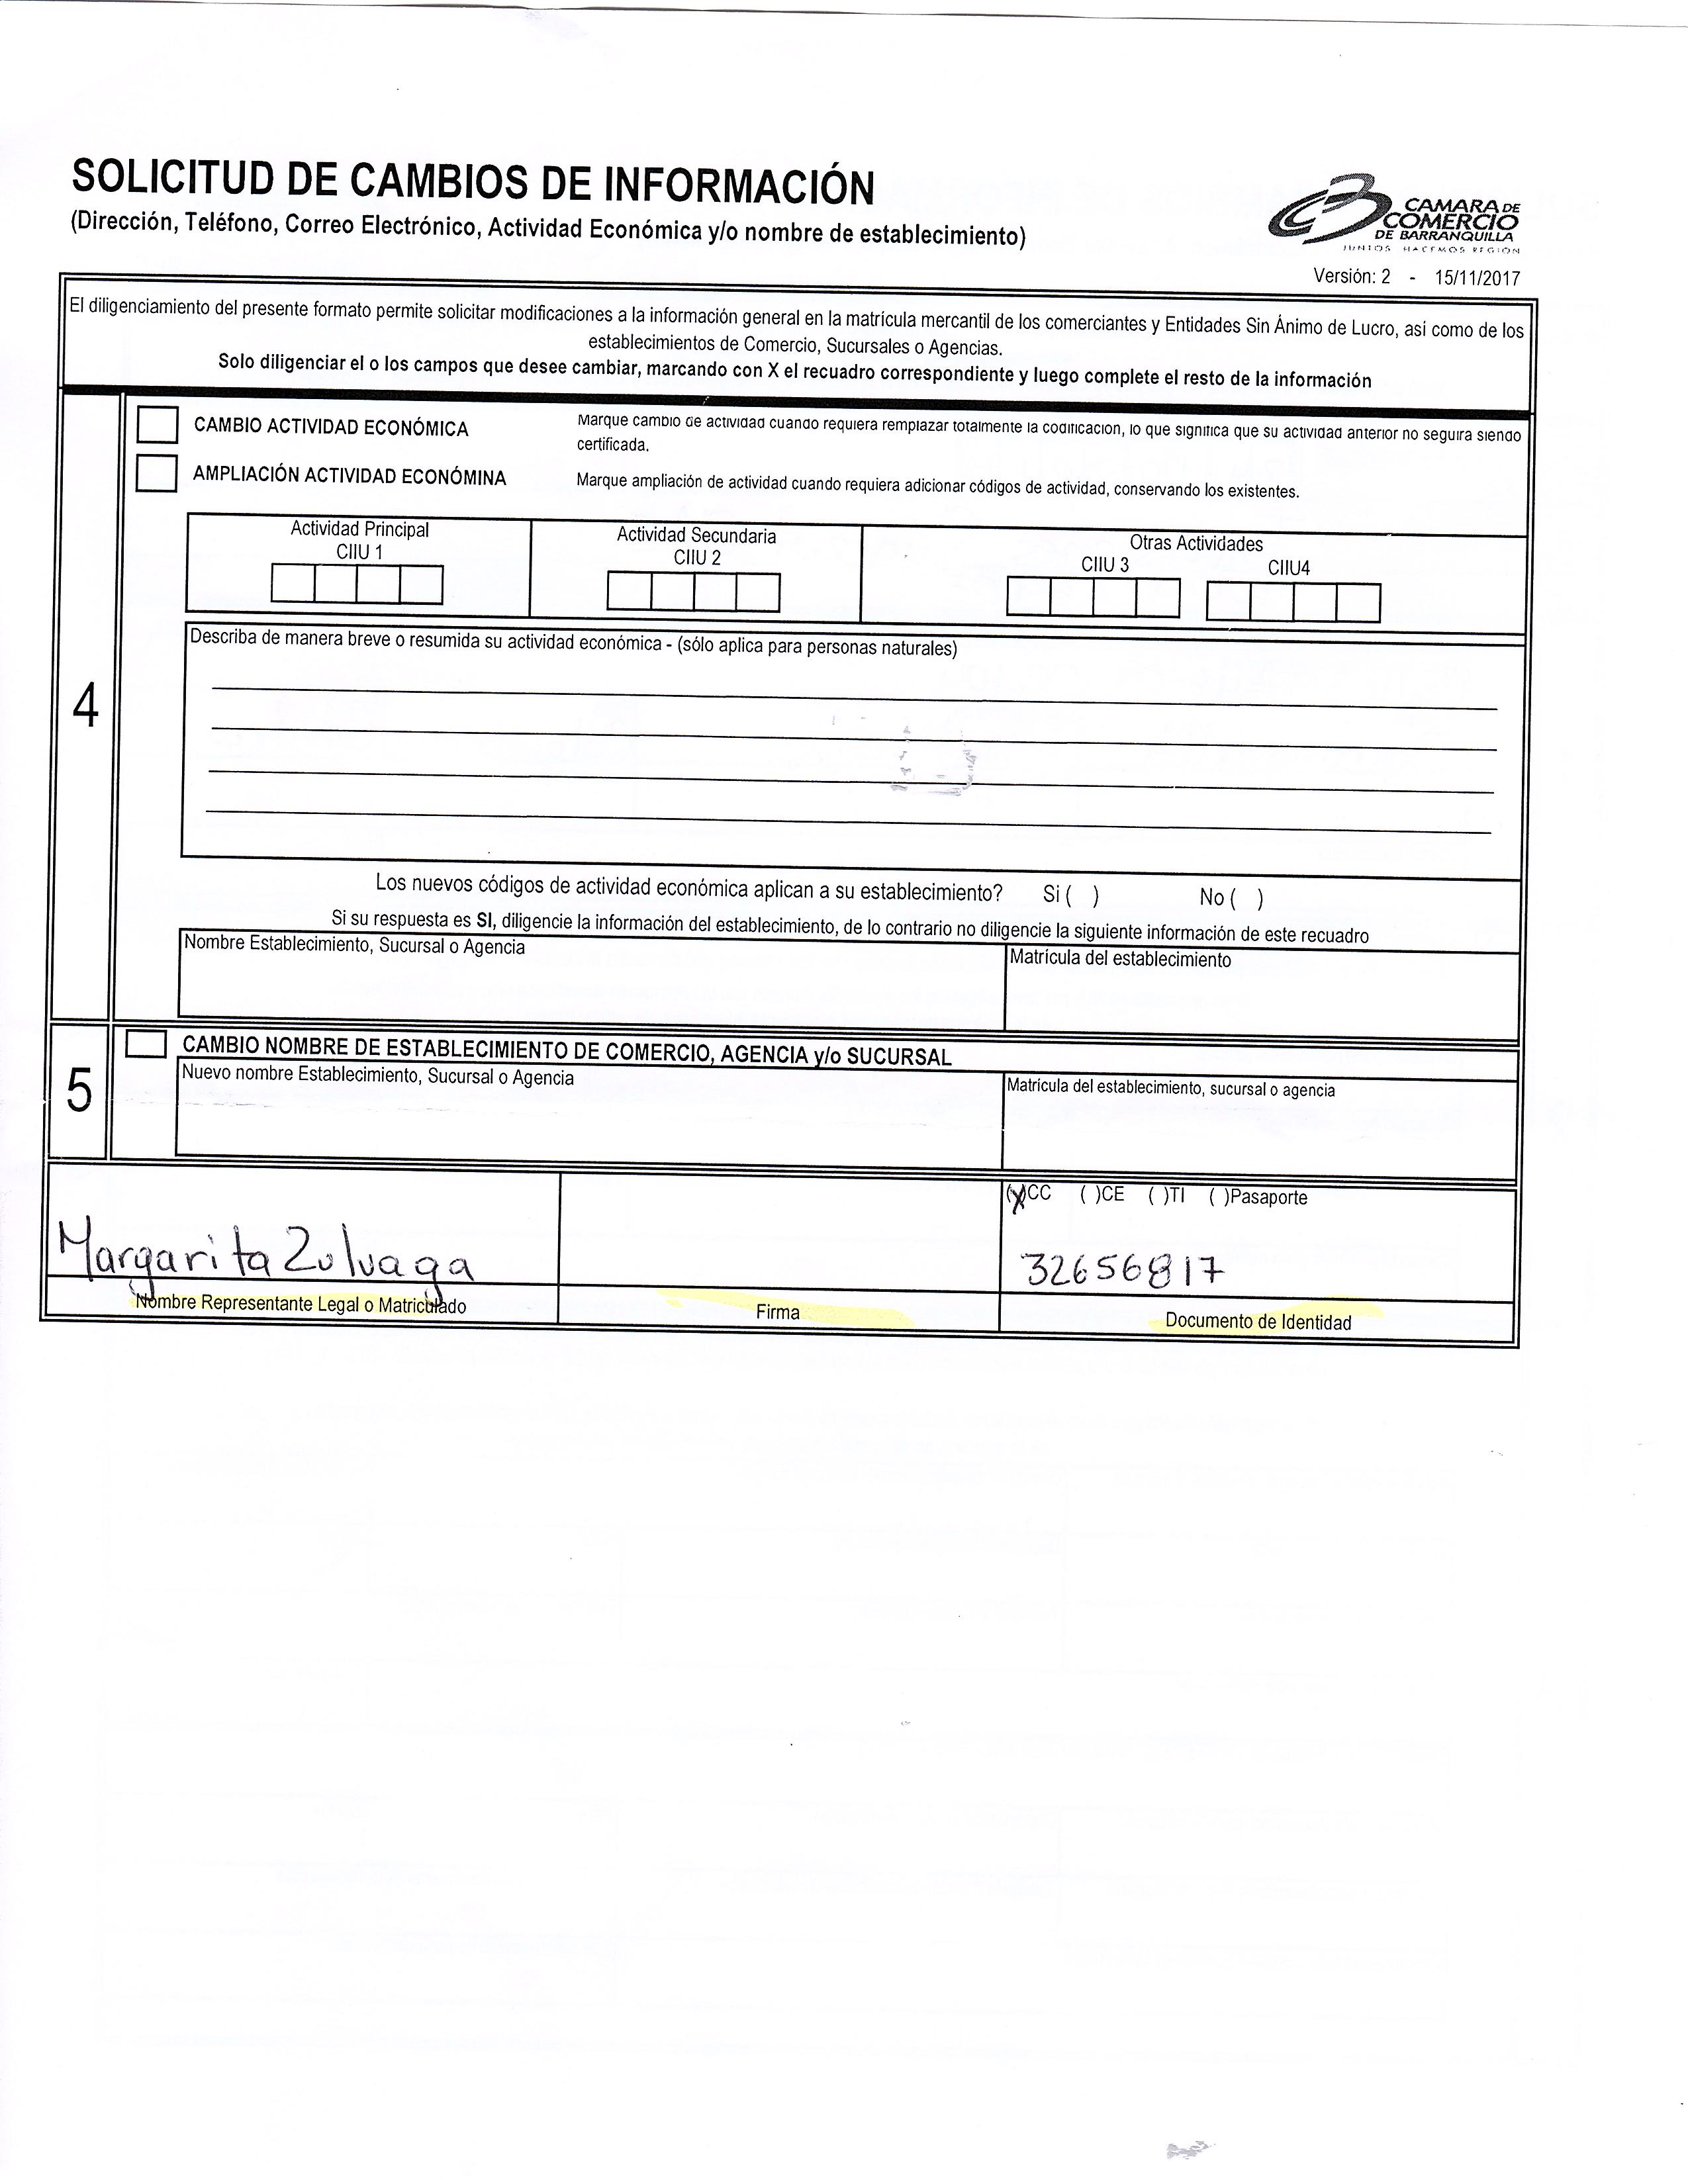 SOLICITUD DE CAMBIOS DE INFORMACIÓN
(Dirección, Teléfono, Correo Electrónico, Actividad Económica y/o nombre de establecimiento)
CAMARA DE
COMERCIO
DE BARRANQUILLA
JUNTOS HACEMOS REGIÓN
Versión: 2 - 15/11/2017
El diligenciamiento del presente formato permite solicitar modificaciones a la información general en la matrícula mercantil de los comerciantes y Entidades Sin Ánimo de Lucro, así como de los
establecimientos de Comercio, Sucursales o Agencias.
Solo diligenciar el o los campos que desee cambiar, marcando con X el recuadro correspondiente y luego complete el resto de la información
4
CAMBIO ACTIVIDAD ECONÓMICA
Marque cambio de actividad cuando requiera remplazar totalmente la codificación, lo que significa que su actividad anterior no seguirá siendo
certificada.
AMPLIACIÓN ACTIVIDAD ECONÓMINA
Marque ampliación de actividad cuando requiera adicionar códigos de actividad, conservando los existentes.
Actividad Principal
CIIU 1
Actividad Secundaria
CIIU 2
Otras Actividades
CIIU 3 CIIU4
Describa de manera breve o resumida su actividad económica - (sólo aplica para personas naturales)
Los nuevos códigos de actividad económica aplican a su establecimiento? Si ( ) No ( )
Si su respuesta es SI, diligencie la información del establecimiento, de lo contrario no diligencie la siguiente información de este recuadro
Nombre Establecimiento, Sucursal o Agencia
Matrícula del establecimiento
5
CAMBIO NOMBRE DE ESTABLECIMIENTO DE COMERCIO, AGENCIA y/o SUCURSAL
Nuevo nombre Establecimiento, Sucursal o Agencia
Matrícula del establecimiento, sucursal o agencia
(X)CC ( )CE ( )TI ( )Pasaporte
Margarita Zuluaga
32656817
Nombre Representante Legal o Matriculado
Firma
Documento de Identidad